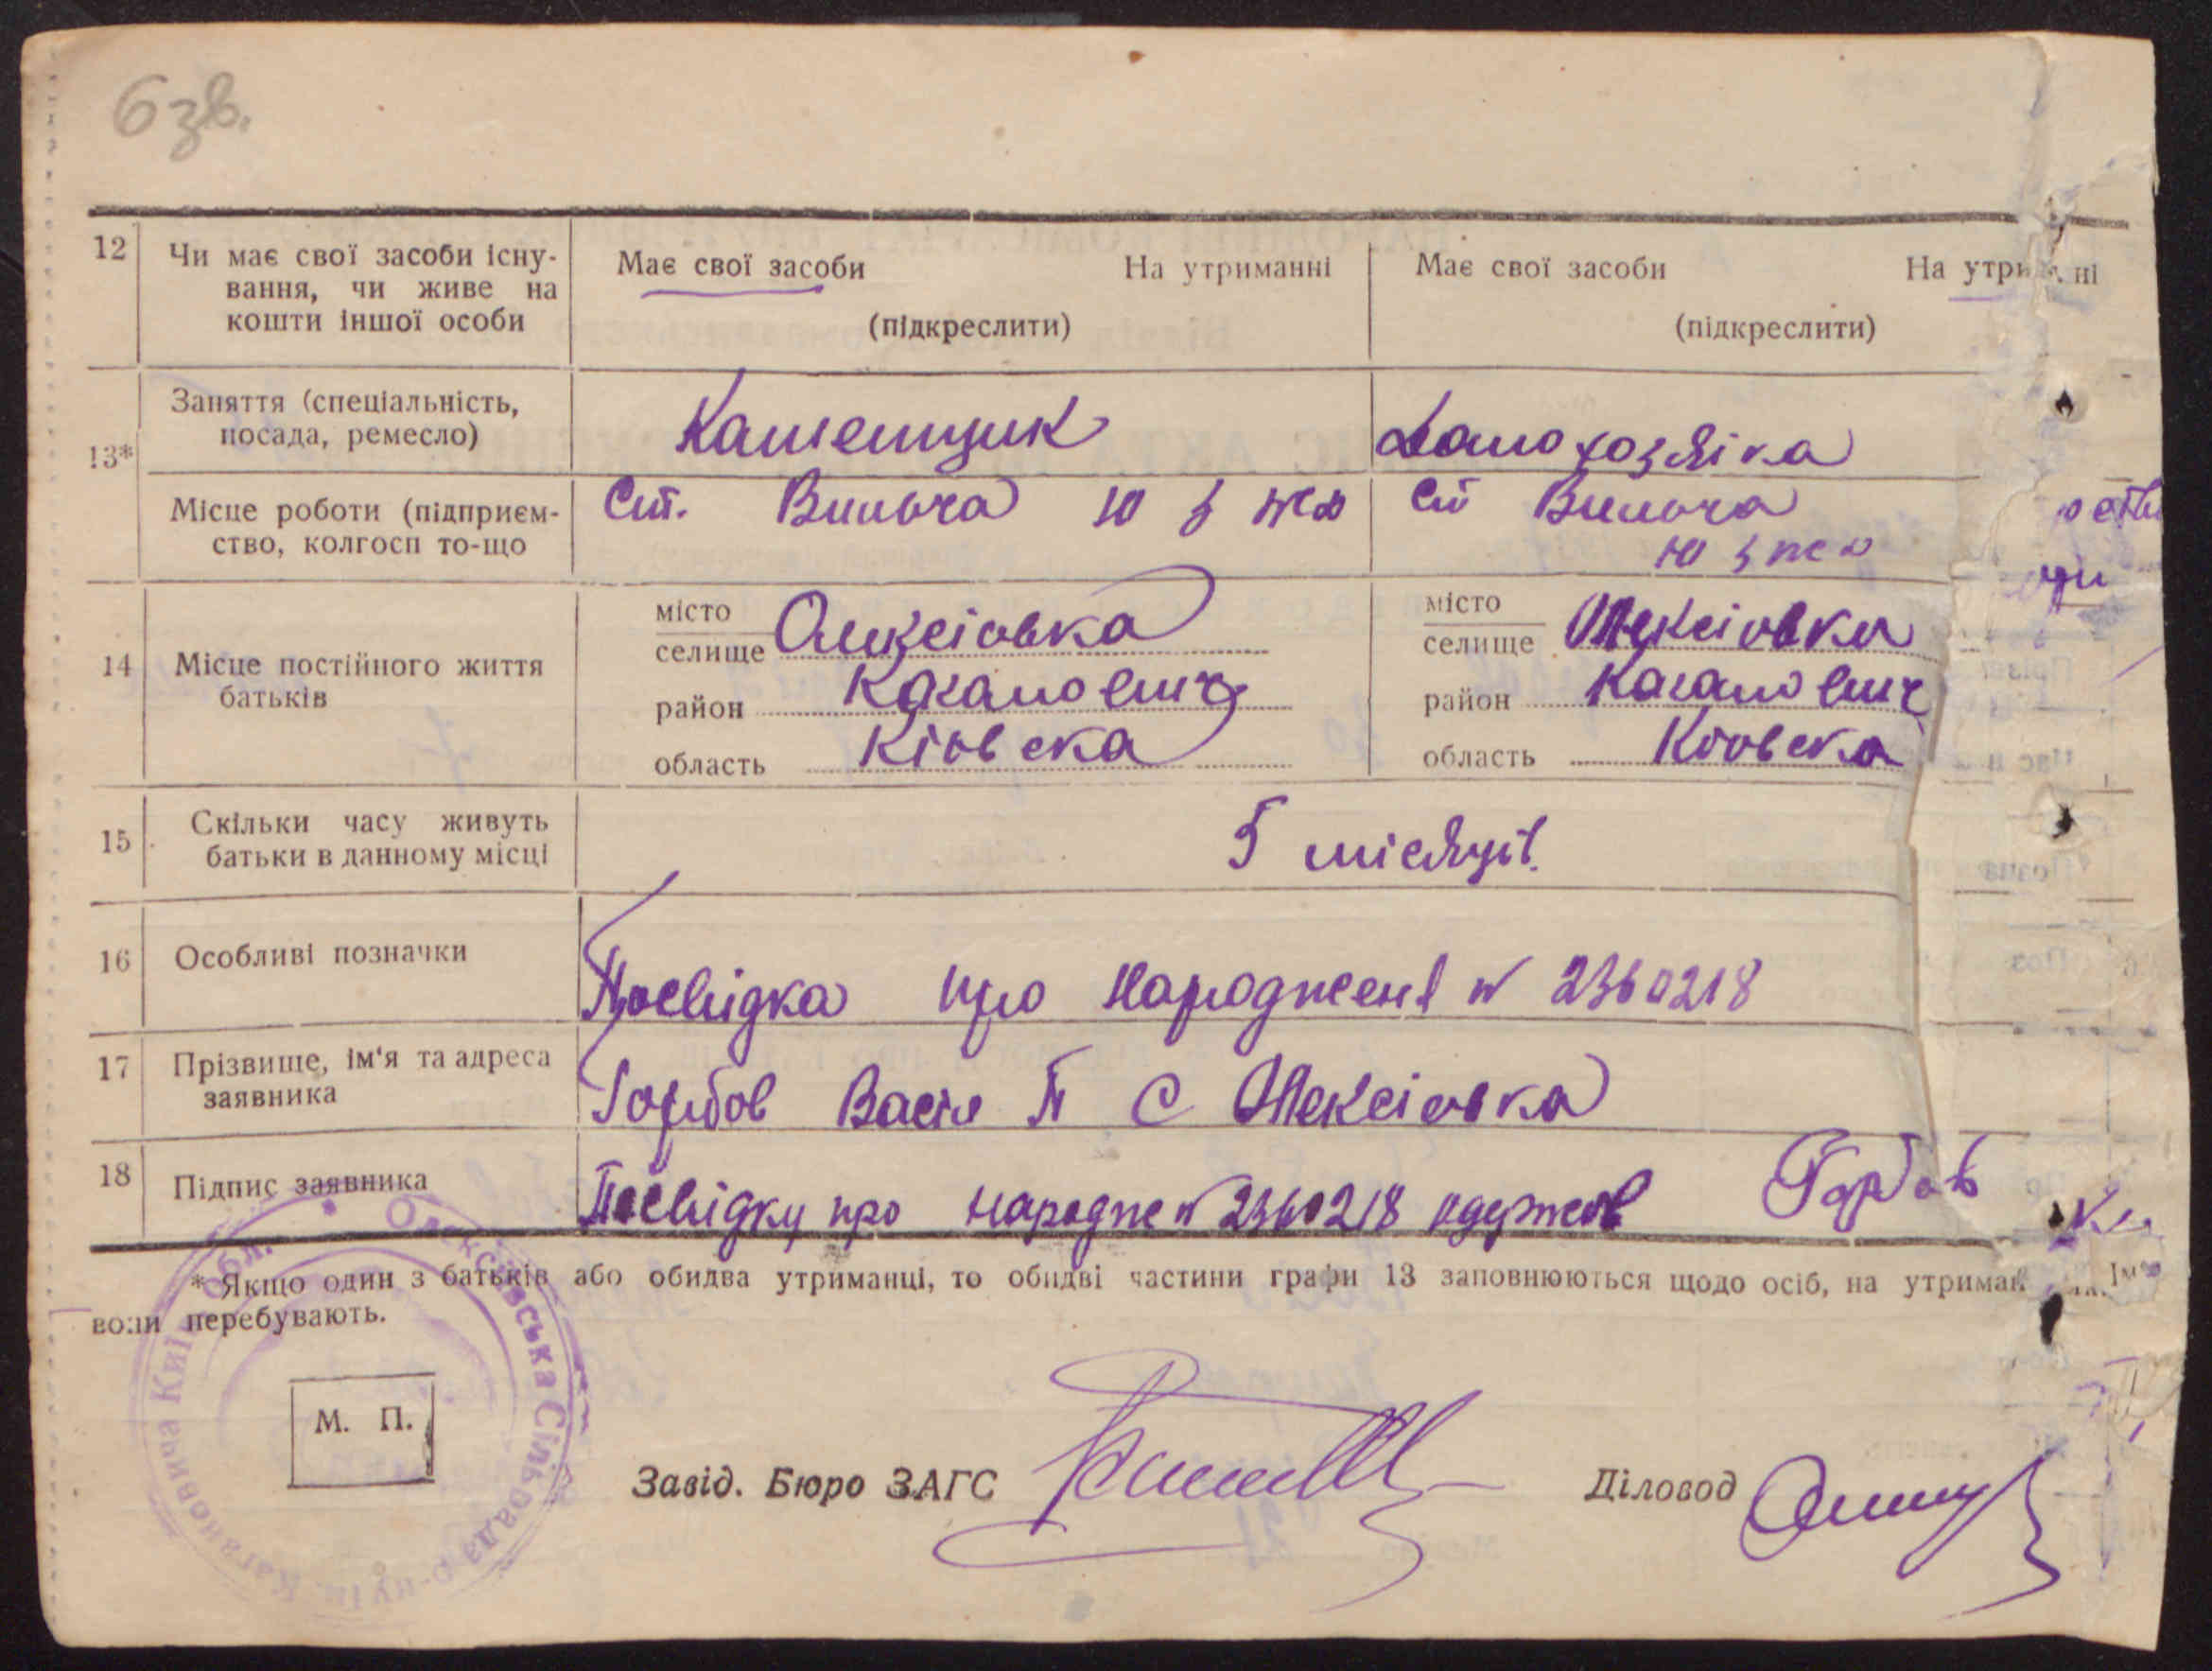 6 зв.
12 Чи має свої засоби існу- Має свої засоби На утриманні Має свої засоби На утри ні
вання, чи живе на
кошти іншої особи (підкреслити) (підкреслити)
13* Заняття (спеціальність, посада, ремесло) Каменщик Домохозяіка
Місце роботи (підприєм- Ст. Вильча Ю З жд Ст Вильча
ство, колгосп то-що Ю З жд
14 Місце постійного життя батьків
місто селище Олексіовка місто селище Олексіовка
район Каганович район Каганович
область Кіовска область Кіовска
15 Скільки часу живуть
батьки в данному місці 5 місяців.
16 Особливі позначки Посвідка про Народженя № 2360218
17 Прізвище, ім'я та адреса
заявника Горбов Васіл П С Олексіовка
18 Підпис заявника Посвідку про народже № 2360218 одержав Горбов
* Якщо один з батьків або обидва утриманці, то обидві частини графи 13 заповнюються щодо осіб, на утриман
вони перебувають.
М. П.
Завід. Бюро ЗАГС Діловод
Олексіївська Сільрада р-ну ім. Кагановича Київ. Обл.